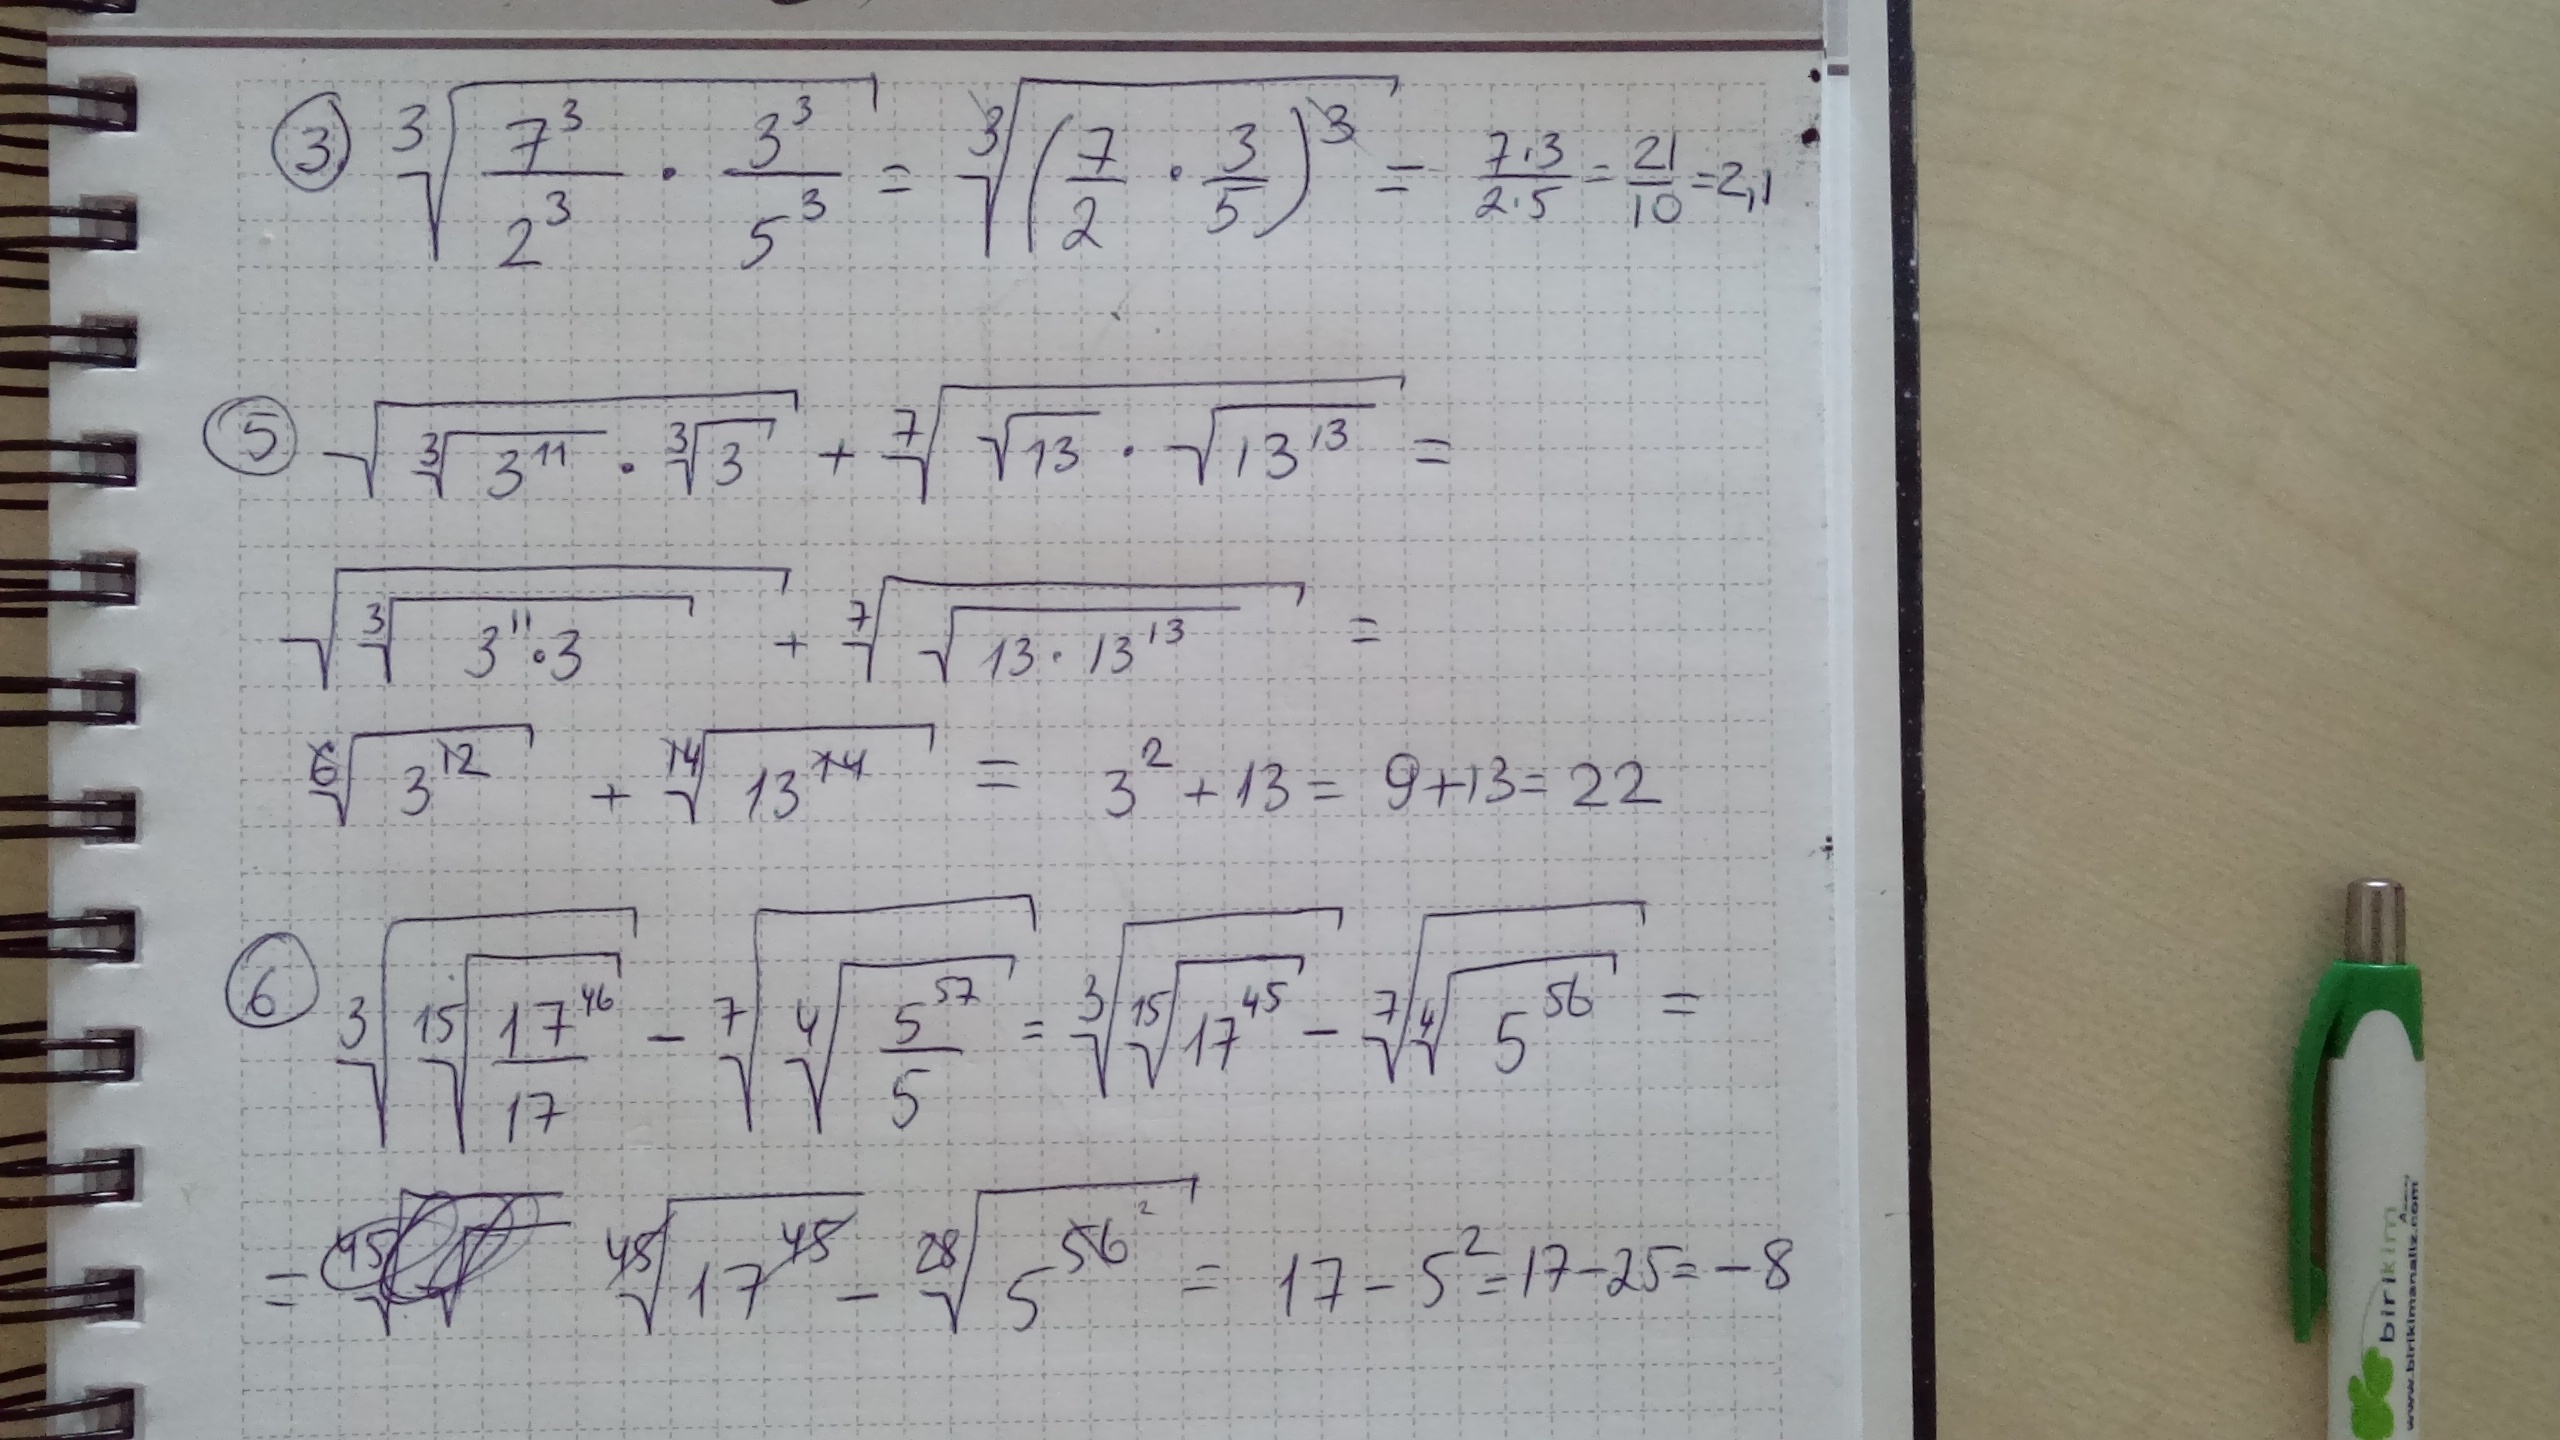 ③ ∛(7³/2³ · 3³/5³) = ∛((7/2 · 3/5)³) = 7·3/2·5 = 21/10 = 2,1
⑤ √(∛(3¹¹) · ∛3) + ⁷√(√13 · √(13¹³)) =
√(∛(3¹¹·3)) + ⁷√(√(13·13¹³)) =
⁶√(3¹²) + ¹⁴√(13¹⁴) = 3² + 13 = 9+13 = 22
⑥ ∛(¹⁵√(17⁴⁶/17)) − ⁷√(⁴√(5⁵⁷/5)) = ∛(¹⁵√(17⁴⁵)) − ⁷√(⁴√(5⁵⁶)) =
= ⁴⁵√(17⁴⁵) − ²⁸√(5⁵⁶ ²) = 17 − 5² = 17−25 = −8
birikim
www.birikimanaliz.com